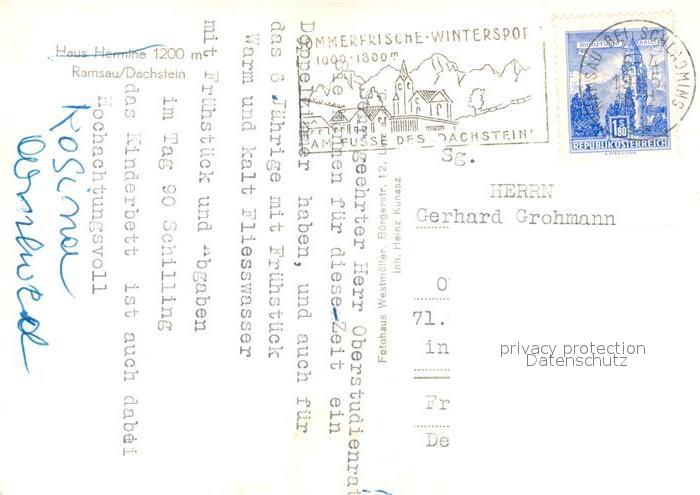 Haus Hermine 1200 m
Ramsau/Dachstein
SOMMERFRISCHE·WINTERSPOR
1000-1800m
AM FUSSE DES DACHSTEINS
RAMSAU BEI SCHLADMING
1.80
REPUBLIK ÖSTERREICH
geehrter Herr Oberstudienrat
für diese Zeit ein
Doppelzimmer haben, und auch für
das 6 Jährige mit Frühstück
Warm und kalt Fliesswasser
mit Frühstück und Abgaben
im Tag 90 Schilling
das Kinderbett ist auch dabei
Hochachtungsvoll
Fotohaus Westmüller, Bürgerstr. 12,
Inh. Heinz Kunasz
Sg.
HERRN
Gerhard Grohmann
O
71.
in
Fr
De
privacy protection
Datenschutz